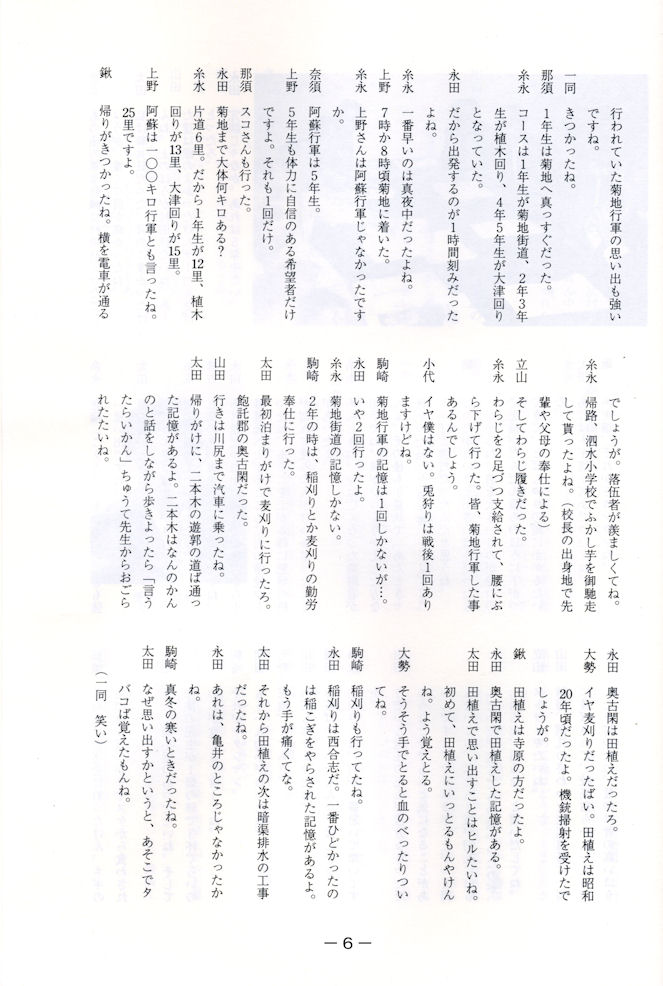 行われていた菊地行軍の思い出も強い
ですね。
一同 きつかったね。
那須 1年生は菊地へ真っすぐだった。
糸永 コースは1年生が菊地街道、2年3年
生が植木回り、4年5年生が大津回り
となっていた。
永田 だから出発するのが1時間刻みだった
よね。
糸永 一番早いのは真夜中だったよね。
上野 7時か8時頃菊地に着いた。
糸永 上野さんは阿蘇行軍じゃなかったです
か。
奈須 阿蘇行軍は5年生。
上野 5年生も体力に自信のある希望者だけ
ですよ。それも1回だけ。
那須 スコさんも行った。
永田 菊地まで大体何キロある?
糸永 片道6里。だから1年生が12里、植木
回りが13里、大津回りが15里。
上野 阿蘇は一〇〇キロ行軍とも言ったね。
25里ですよ。
鍬 帰りがきつかったね。横を電車が通る
でしょうが。落伍者が羨ましくてね。
糸永 帰路、泗水小学校でふかし芋を御馳走
して貰ったよね。(校長の出身地で先
輩や父母の奉仕による)
立山 そしてわらじ履きだった。
糸永 わらじを2足づつ支給されて、腰にぶ
ら下げて行った。皆、菊地行軍した事
あるんでしょう。
小代 イヤ僕はない。兎狩りは戦後1回あり
ますけどね。
駒崎 菊地行軍の記憶は1回しかないが…。
永田 いや2回行ったよ。
糸永 菊地街道の記憶しかない。
駒崎 2年の時は、稲刈りとか麦刈りの勤労
奉仕に行った。
太田 最初泊まりがけで麦刈りに行ったろ。
飽託郡の奥古閑だった。
山田 行きは川尻まで汽車に乗ったね。
太田 帰りがけに、二本木の遊郭の道ば通っ
た記憶があるよ。二本木はなんのかん
のと話をしながら歩きよったら「言う
たらいかん」ちゅうて先生からおごら
れたたいね。
永田 奥古閑は田植えだったろ。
大勢 イヤ麦刈りだったばい。田植えは昭和
20年頃だったよ。機銃掃射を受けたで
しょうが。
鍬 田植えは寺原の方だったよ。
永田 奥古閑で田植えした記憶がある。
太田 田植えで思い出すことはヒルたいね。
初めて、田植えにいっとるもんやけん
ね。よう覚えとる。
大勢 そうそう手でとると血のべったりつい
てね。
駒崎 稲刈りも行ってたね。
永田 稲刈りは西合志だ。一番ひどかったの
は稲こぎをやらされた記憶があるよ。
もう手が痛くてな。
太田 それから田植えの次は暗渠排水の工事
だったね。
永田 あれは、亀井のところじゃなかったか
ね。
駒崎 真冬の寒いときだったね。
太田 なぜ思い出すかというと、あそこでタ
バコば覚えたもんね。
(一同 笑い)
―6―